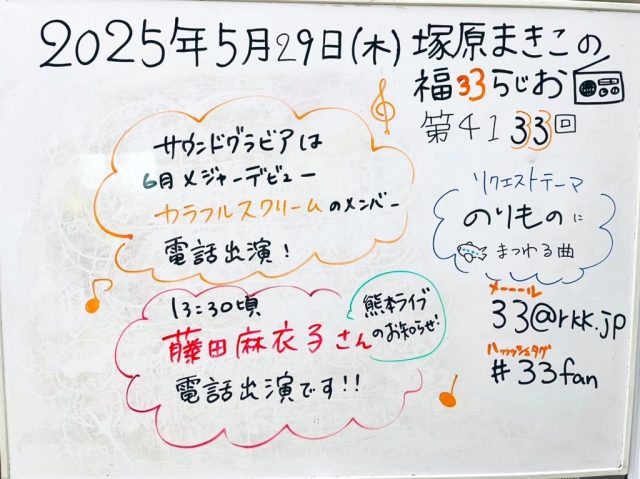 2025年5月29日(木)塚原まきこの
福33らじお
第4133回
サウンドグラビアは
6月メジャーデビュー
カラフルスクリームのメンバー
電話出演!
リクエストテーマ
のりものに
まつわる曲
13:30頃
藤田麻衣子さん
電話出演です!!
熊本ライブ
のお知らせ!
メーーール
33@rkk.jp
ハッシュタグ
#33fan